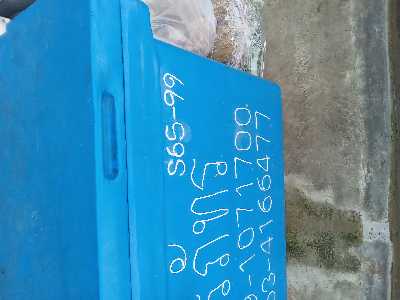 S65-99
รภัทร
9-1071700
63-4166477